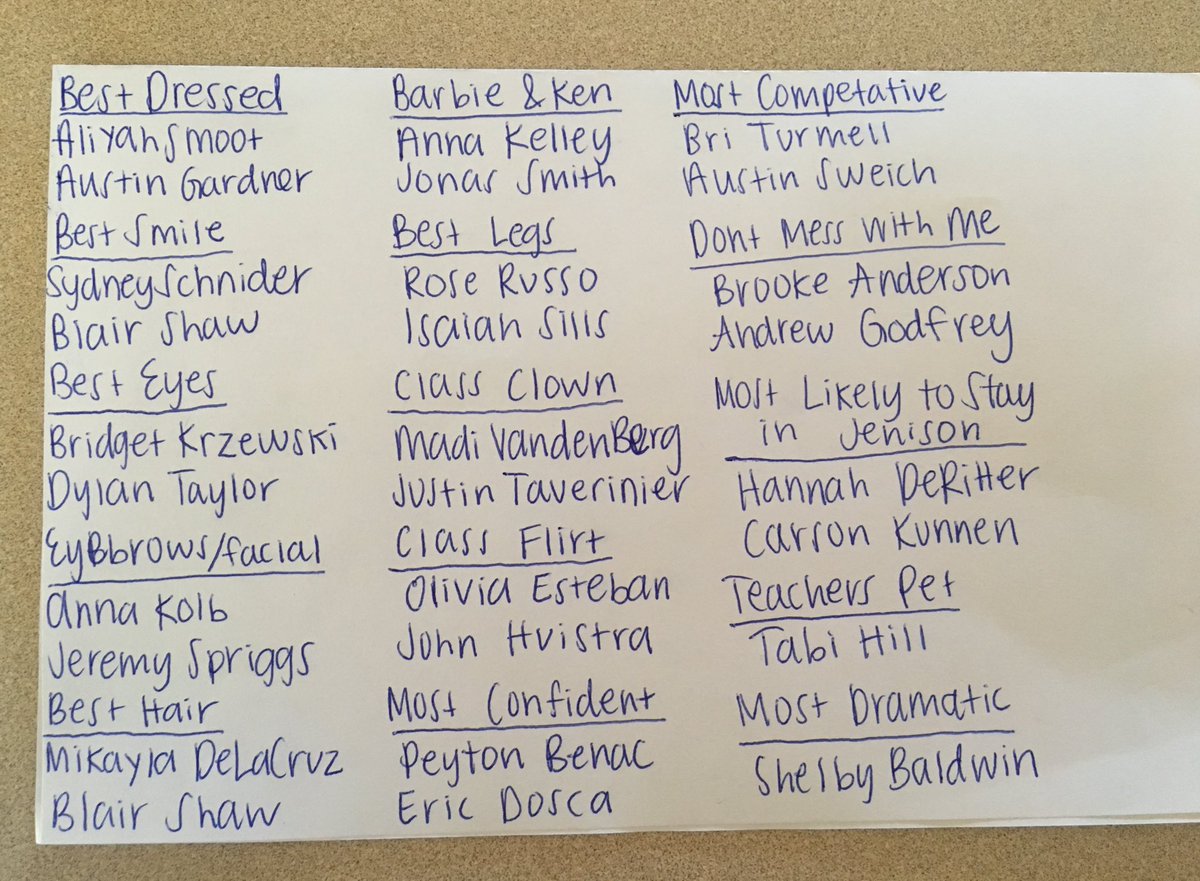 Best Dressed
Aliyah Smoot
Austin Gardner
Best Smile
Sydney Schnider
Blair Shaw
Best Eyes
Bridget Krzewski
Dylan Taylor
EyBbrows/facial
Anna Kolb
Jeremy Spriggs
Best Hair
Mikayla DeLaCruz
Blair Shaw
Barbie & Ken
Anna Kelley
Jonas Smith
Best Legs
Rose Russo
Isaiah Sills
Class Clown
Madi VandenBerg
Justin Taverinier
Class Flirt
Olivia Esteban
John Hvistra
Most Confident
Peyton Benac
Eric Dosca
Most Competative
Bri Turmell
Austin Sweich
Dont Mess With Me
Brooke Anderson
Andrew Godfrey
Most Likely to Stay
in Jenison
Hannah DeRitter
Carson Kunnen
Teachers Pet
Tabi Hill
Most Dramatic
Shelby Baldwin